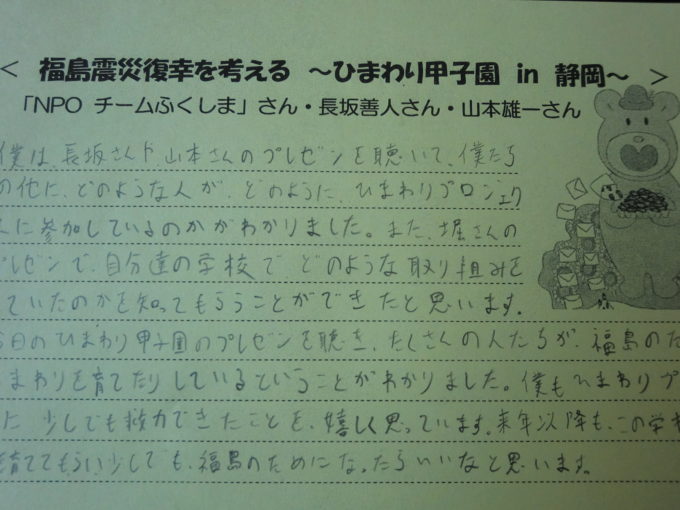 < 福島震災復幸を考える ～ひまわり甲子園 in 静岡～ >
「NPO チームふくしま」さん・長坂善人さん・山本雄一さん
僕は、長坂さんや、山本さんのプレゼンを聴いて、僕たち
の他に、どのような人が、どのように、ひまわりプロジェク
に参加しているのかがわかりました。また、堀さんの
プレゼンで、自分達の学校で どのような取り組みを
ていたのかを知ってもらうことができたと思います。
今日のひまわり甲子園のプレゼンを聴き、たくさんの人たちが、福島のた
まわりを育てたりしているということがわかりました。僕もひまわりプ
に 少しでも協力できたことを、嬉しく思っています。来年以降も、この学校
育ててもらい少しでも、福島のためになったらいいなと思います。